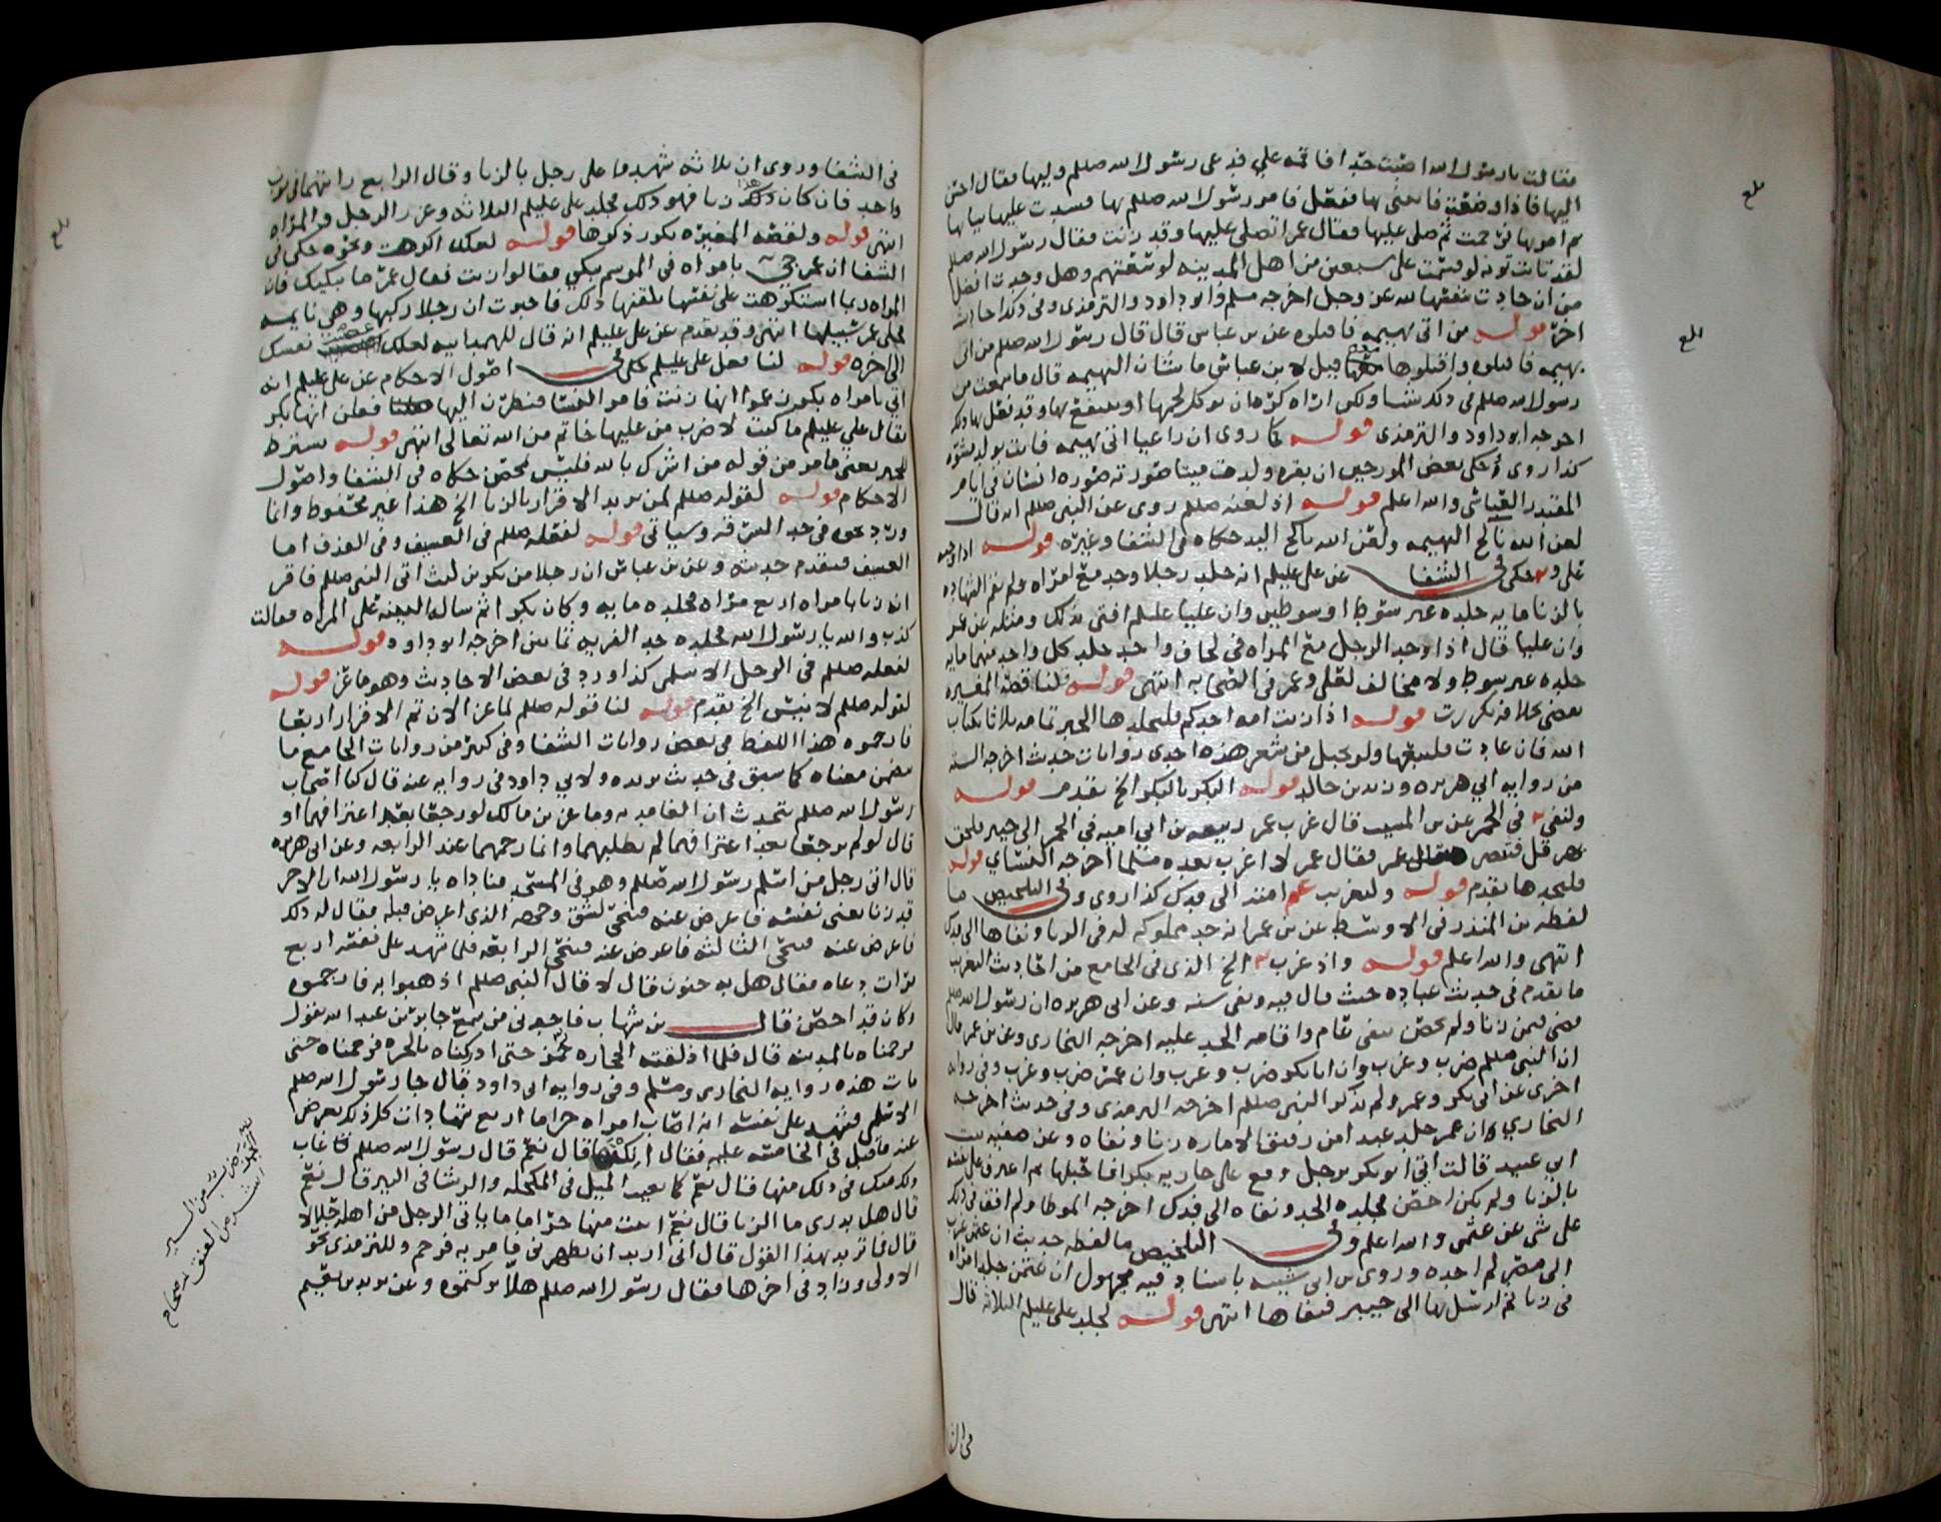 فقالت يا رسول الله اصبت حدا فاقمه علي فدعى رسول الله صللم وليها فقال احسن
اليها فاذا وضعت فاتني بها ففعل فامر رسول الله صللم بها فشدت عليها ثيابها
ثم امر بها فرجمت ثم صلى عليها فقال عمر اتصلي عليها وقد زنت فقال رسول الله صللم
لقد تابت توبة لو قسمت على سبعين من اهل المدينه لوسعتهم وهل وجدت افضل
من ان جادت بنفسها لله عز وجل اخرجه مسلم وابو داود والترمذي وفي ذلك احاديث
اخر قوله من اتى بهيمه فاقتلوه عن بن عباس قال قال رسول الله صللم من اتى
بهيمه فاقتلوه واقتلوها معه قيل لابن عباس ما شان البهيمه قال ما سمعت من
رسول الله صللم في ذلك شيئا ولكن اراه كره ان يوكل لحمها او ينتفع بها وقد فعل بها ذلك
اخرجه ابو داود والترمذي قوله لما روى ان راعيا اتى بهيمه فاتت بولد مشوه
كذا روى وحكى بعض المورخين ان بقره ولدت ميتا صورته صورة انسان في ايام
المقتدر العباسي والله اعلم قوله اذ لعنه صللم روى عن النبي صللم انه قال
لعن الله ناكح البهيمه ولعن الله ناكح اليد حكاه في الشفا وغيره قوله
علي و حكى في الشفا عن علي عليلم انه جلد رجلا وجد مع امراه ولم تقم الشهاده
بالزنا مايه جلده غير سوط او سوطين وان عليا عليلم افتى بذلك ومثله عن عمر
وان عليا قال اذا وجد الرجل مع المراه في لحاف واحد جلد كل واحد منهما مايه
جلده غير سوط ولا مخالف لعلي وعمر في الصحابه انتهى قوله لنا قصة المغيره
يعني بخلافه تكررت قوله اذا زنت امه احدكم فليجلدها الخبر تمامه ثلاثا بكتاب
الله فان عادت فليبعها ولو بحبل من شعر هذه احدى روايات حديث اخرجه السته
من روايه ابي هريره وزيد بن خالد قوله البكر بالبكر الخ تقدم قوله
ولنفي في الخمر عن بن المسيب قال غرب عمر ربيعه بن ابي اميه في الخمر الى خيبر فلحق
بهرقل فتنصر فقال عمر لا اغرب بعده مسلما اخرجه النسائي قوله
فليجلدها تقدم قوله ولتغريب عمر امته الى فدك كذا روى وفي التلخيص ما
لفظه بن المنذر في الاوسط عن بن عمر انه حد مملوكه له في الزنا ونفاها الى فدك
انتهى والله اعلم قوله واذ غرب الخ الذي في الجامع من احاديث التغريب
ما تقدم في حديث عباده حيث قال فيه ونفي سنه وعن ابي هريره ان رسول الله صللم
قضى فيمن زنا ولم يحصن بنفي عام واقامه الحد عليه اخرجه البخاري وعن بن عمر قال
ان النبي صللم ضرب وغرب وان ابا بكر ضرب وغرب وان عمر ضرب وغرب وفي روايه
اخرى عن ابي بكر وعمر ولم يذكر النبي صللم اخرجه الترمذي وفي حديث اخرجه
البخاري ان عمر جلد عبدا من رقيق الاماره زنا ونفاه وعن صفيه بنت
ابي عبيد قالت اتي ابو بكر برجل وقع على جاريه بكر فاحبلها ثم اعترف على نفسه
بالزنا ولم يكن احصن فجلده الحد ونفاه الى فدك اخرجه الموطا ولم اقف في ذلك
على شي عن عثمن والله اعلم وفي التلخيص ما لفظه حديث ان عثمن غرب
الى مصر لم اجده وروى بن ابي شيبه باسناد فيه مجهول ان عثمن جلد امراه
في زنا ثم ارسل بها الى خيبر فنفاها انتهى قوله لجلد علي عليلم الثلاثه قال
في الشفا
في الشفا وروى ان ثلاثه شهدوا على رجل بالزنا وقال الرابع رايتهما في ثوب
واحد فان كان ذلك زنا فهو ذلك فجلد علي عليلم الثلاثه وعزر الرجل والمراه
انتهى قوله ولقصه المغيره تكرر ذكرها قوله لعلك اكرهت ونحوه حكى في
الشفا ان عمر جيء بامراه في الموسم تبكي فقالوا زنت فقال عمر ما يبكيك فان
المراه ربما استكرهت على نفسها يلقنها ذلك فاخبرت ان رجلا ركبها وهي نايمه
فخلى عمر سبيلها انتهى وقد تقدم عن علي عليلم انه قال للهمدانيه لعلك غصبت نفسك
الى اخره قوله لنا فعل علي عليلم حكى في اصول الاحكام عن علي عليلم انه
اتي بامراه بكر زعموا انها زنت فامر النسا فنظرن اليها فقلن انها بكر
فقال علي عليلم ما كنت لاضرب من عليها خاتم من الله تعالى انتهى قوله ستره
للخبر يعني ما مر من قوله من اشرك بالله فليس بمحصن حكاه في الشفا واصول
الاحكام قوله لقوله صللم لمن يريد الاقرار بالزنا الخ هذا غير محفوظ وانما
ورد نحوه في حد السرقه وسياتي قوله لفعله صللم في العسيف وفي القذف اما
العسيف فتقدم حديثه وعن بن عباس ان رجلا من بكر بن ليث اتى النبي صللم فاقر
انه زنا بامراه اربع مرات فجلده مايه وكان بكرا ثم ساله البينه على المراه فقالت
كذب والله يا رسول الله فجلده حد الفريه ثمانين اخرجه ابو داود قوله
لفعله صللم في الرجل الاسلمي كذا ورد في بعض الاحاديث وهو ماعز قوله
لقوله صللم لا تبتئس الخ تقدم قوله لنا قوله صللم لماعز الان تم الاقرار اربعا
فارجموه هذا اللفظ في بعض روايات الشفا وفي كثير من روايات الجامع ما
يتضمن معناه كما سبق في حديث بريده ولابي داود في روايه عنه قال كنا اصحاب
رسول الله صللم نتحدث ان الغامديه وماعز بن مالك لو رجعا بعد اعترافهما او
قال لو لم يرجعا بعد اعترافهما لم يطلبهما وانما رجمهما عند الرابعه وعن ابي هريره
قال اتى رجل من اسلم رسول الله صللم وهو في المسجد فناداه يا رسول الله ان الاخر
قد زنا يعني نفسه فاعرض عنه فتنحى لشق وجهه الذي اعرض قبله فقال له ذلك
فاعرض عنه فتنحى الثالثه فاعرض عنه فتنحى الرابعه فلما شهد على نفسه اربع
مرات دعاه فقال هل به جنون قال لا قال النبي صللم اذهبوا به فارجموه
وكان قد احصن قال بن شهاب فاخبرني من سمع جابر بن عبد الله يقول
فرجمناه بالمدينه قال فلما اذلقته الحجاره جمز حتى ادركناه بالحره فرجمناه حتى
مات هذه روايه البخاري ومسلم وفي روايه ابي داود قال جا رسول الله صللم
الاسلمي فشهد على نفسه انه اصاب امراه حراما اربع شهادات كل ذلك يعرض
عنه فاقبل في الخامسه عليه فقال انكتها قال نعم قال رسول الله صللم كما غاب
ذلك منك في ذلك منها قال نعم كما يغيب الميل في المكحله والرشا في البير قال نعم
قال هل تدري ما الزنا قال نعم اتيت منها حراما ما ياتي الرجل من اهله حلالا
قال فما تريد بهذا القول قال اني اريد ان تطهرني فامر به فرجم وللترمذي نحو
الاولى وزاد في اخرها فقال رسول الله صللم هلا تركتموه وعن يزيد بن نعيم
بلغ
بلغ
بلغ